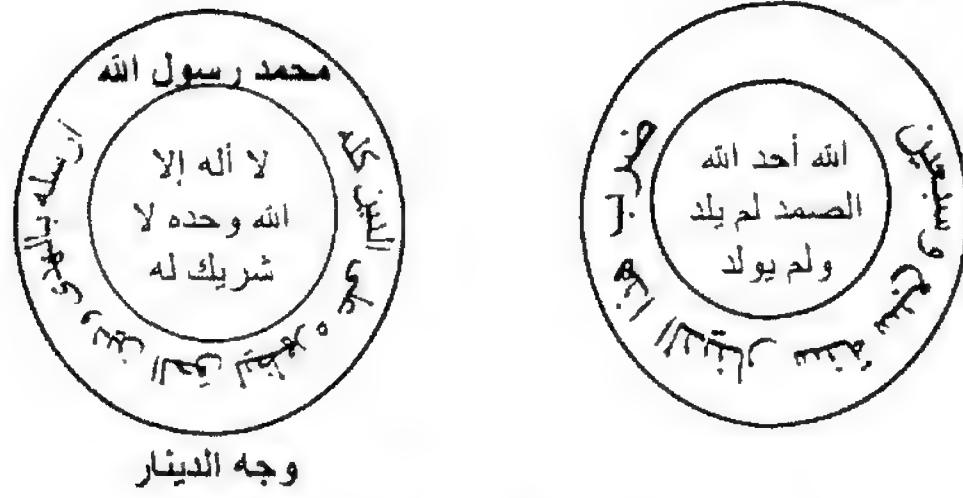 محمد رسول الله
أرسله بالهدى ودين الحق ليظهره على الدين كله
لا أله إلا
الله وحده لا
شريك له
وجه الدينار
الله أحد الله
الصمد لم يلد
ولم يولد
ضرب هذا الدينار سنة سبع وسبعين